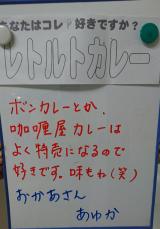 あなたはコレ好きですか?
レトルトカレー
ボンカレーとか、
咖喱屋カレーは
よく特売になるので
好きです。味もね(笑)
おかあさん
あゆか